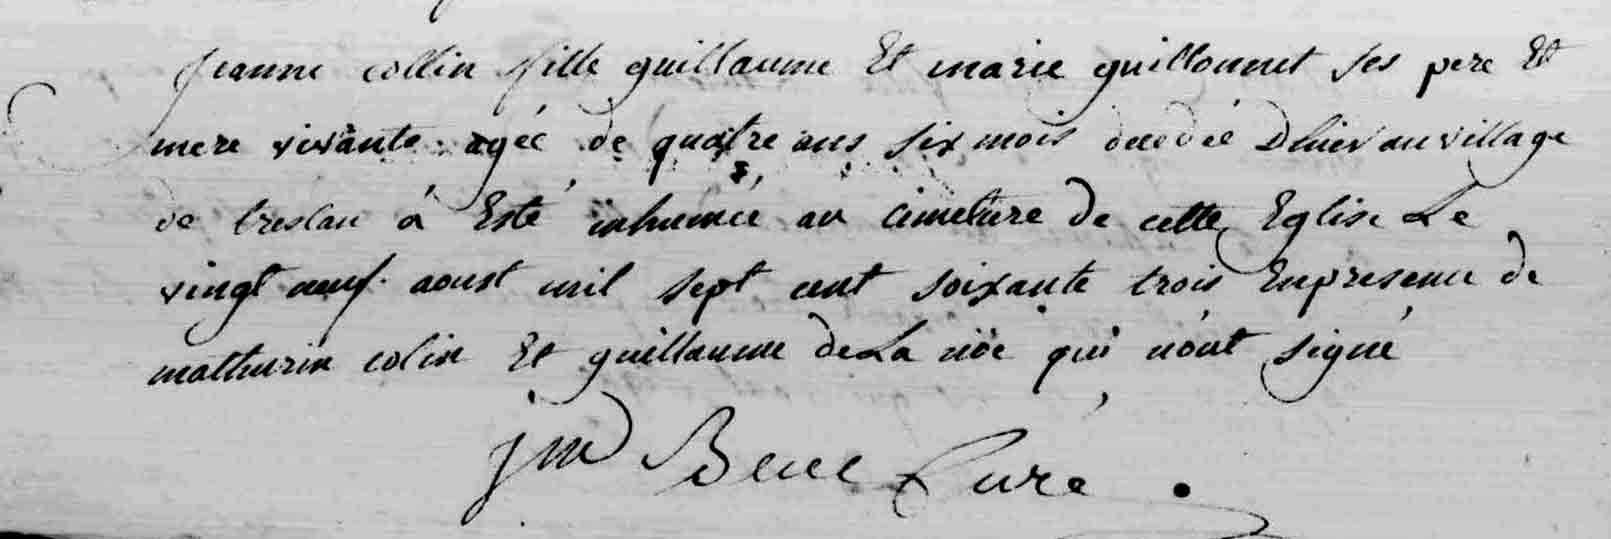 Jeanne collin fille guillaume Et marie guillonnet ses pere Et
mere vivante agéé de quatre ans six mois decedéé Dhier au village
de treslan á Esté inhuméé au cimetiere de cette Eglise Le
vingt neuf aoust mil sept cent soixante trois En presence de
mathurin colin Et guillaume de La nöe qui n'ont signé
jm Cure